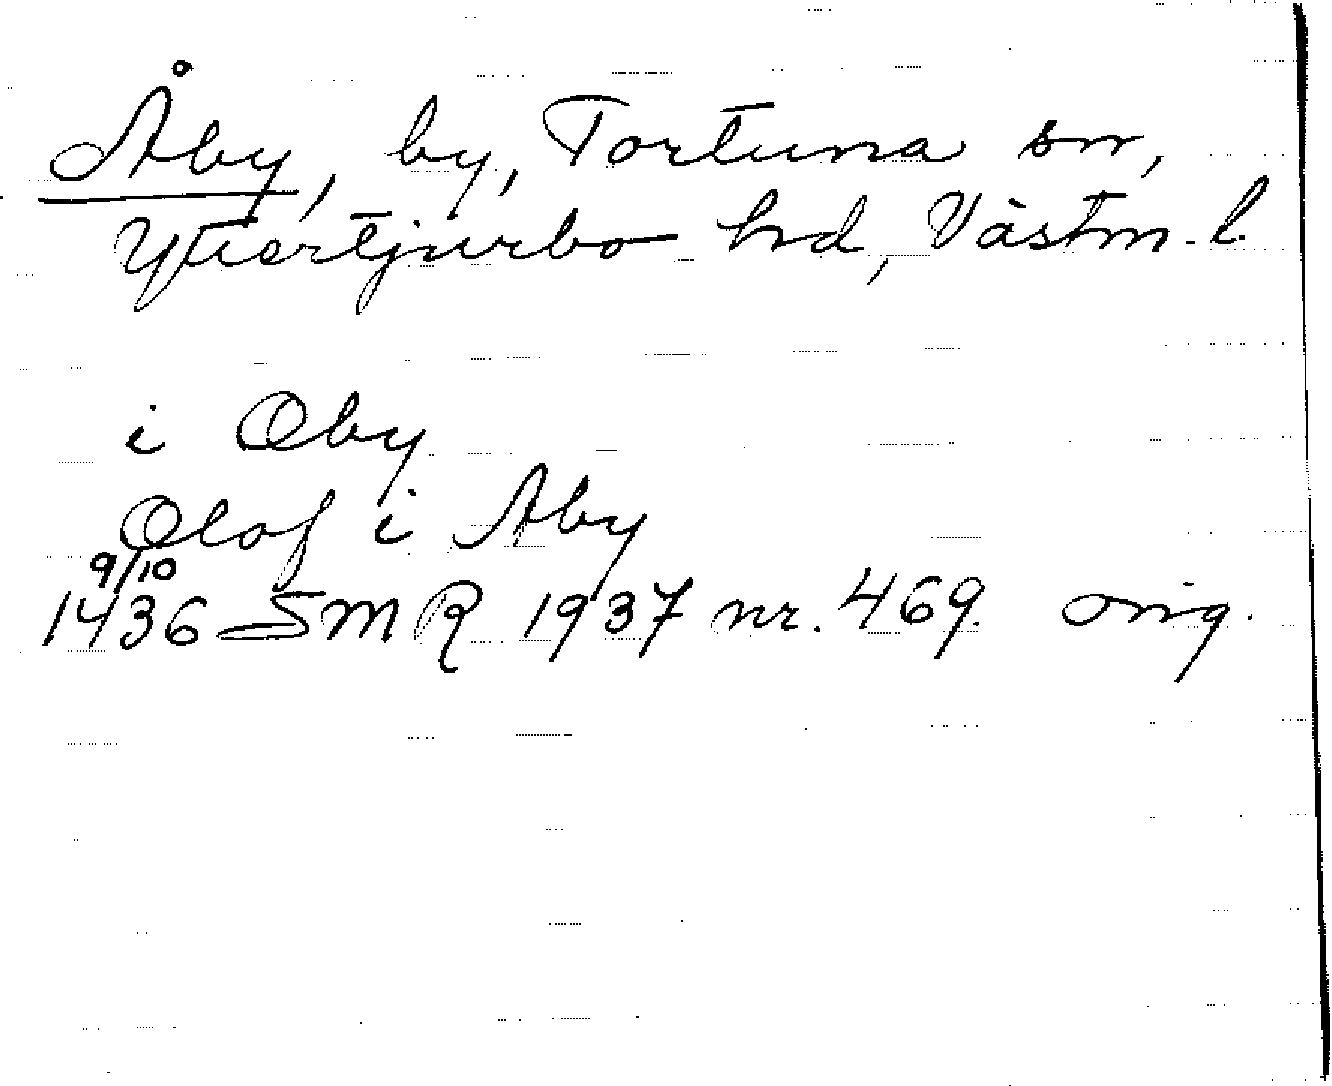 Åby, by, Tortuna sn,
Yttertjurbo hd, Västm. l.
i Oby
Olof i Aby
9/10
1436 SMR 1937 nr. 469. orig.